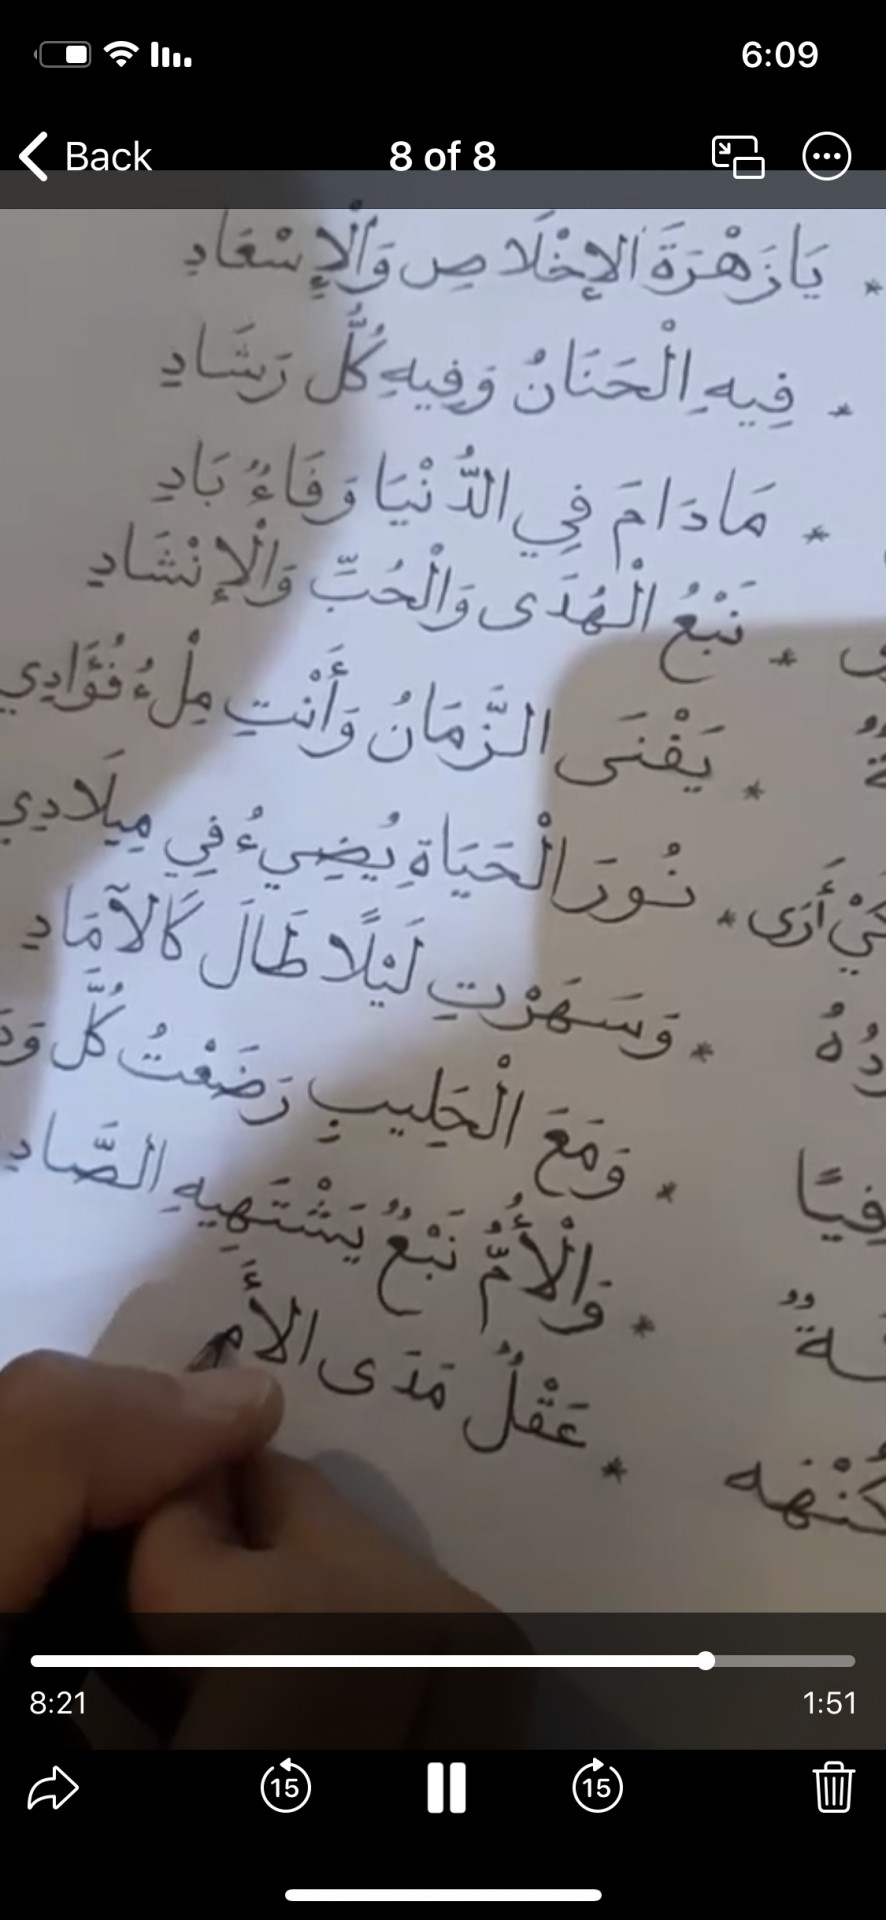 6:09
Back 8 of 8
* يَازَهْرَةَ الإِخْلَاصِ وَالْإِسْعَادِ
* فِيهِ الْحَنَانُ وَفِيهِ كُلُّ رَشَادِ
* مَادَامَ فِي الدُّنْيَا وَفَاءٌ بَادِ
* نَبْعُ الْهُدَى وَالْحُبِّ وَالْإِنْشَادِ
* يَفْنَى الزَّمَانُ وَأَنْتِ مِلْءُ فُؤَادِي
كَيْ أَرَى * نُورَ الْحَيَاةِ يُضِيءُ فِي مِيلَادِي
* وَسَهَرْتِ لَيْلًا طَالَ كَالآمَادِ
* وَمَعَ الْحَلِيبِ رَضَعْتُ كُلَّ
* وَالْأُمُّ نَبْعٌ يَشْتَهِيهِ الصَّادِ
كُنْهَه * عَقْلٌ مَدَى الأَم
8:21 1:51
15 15